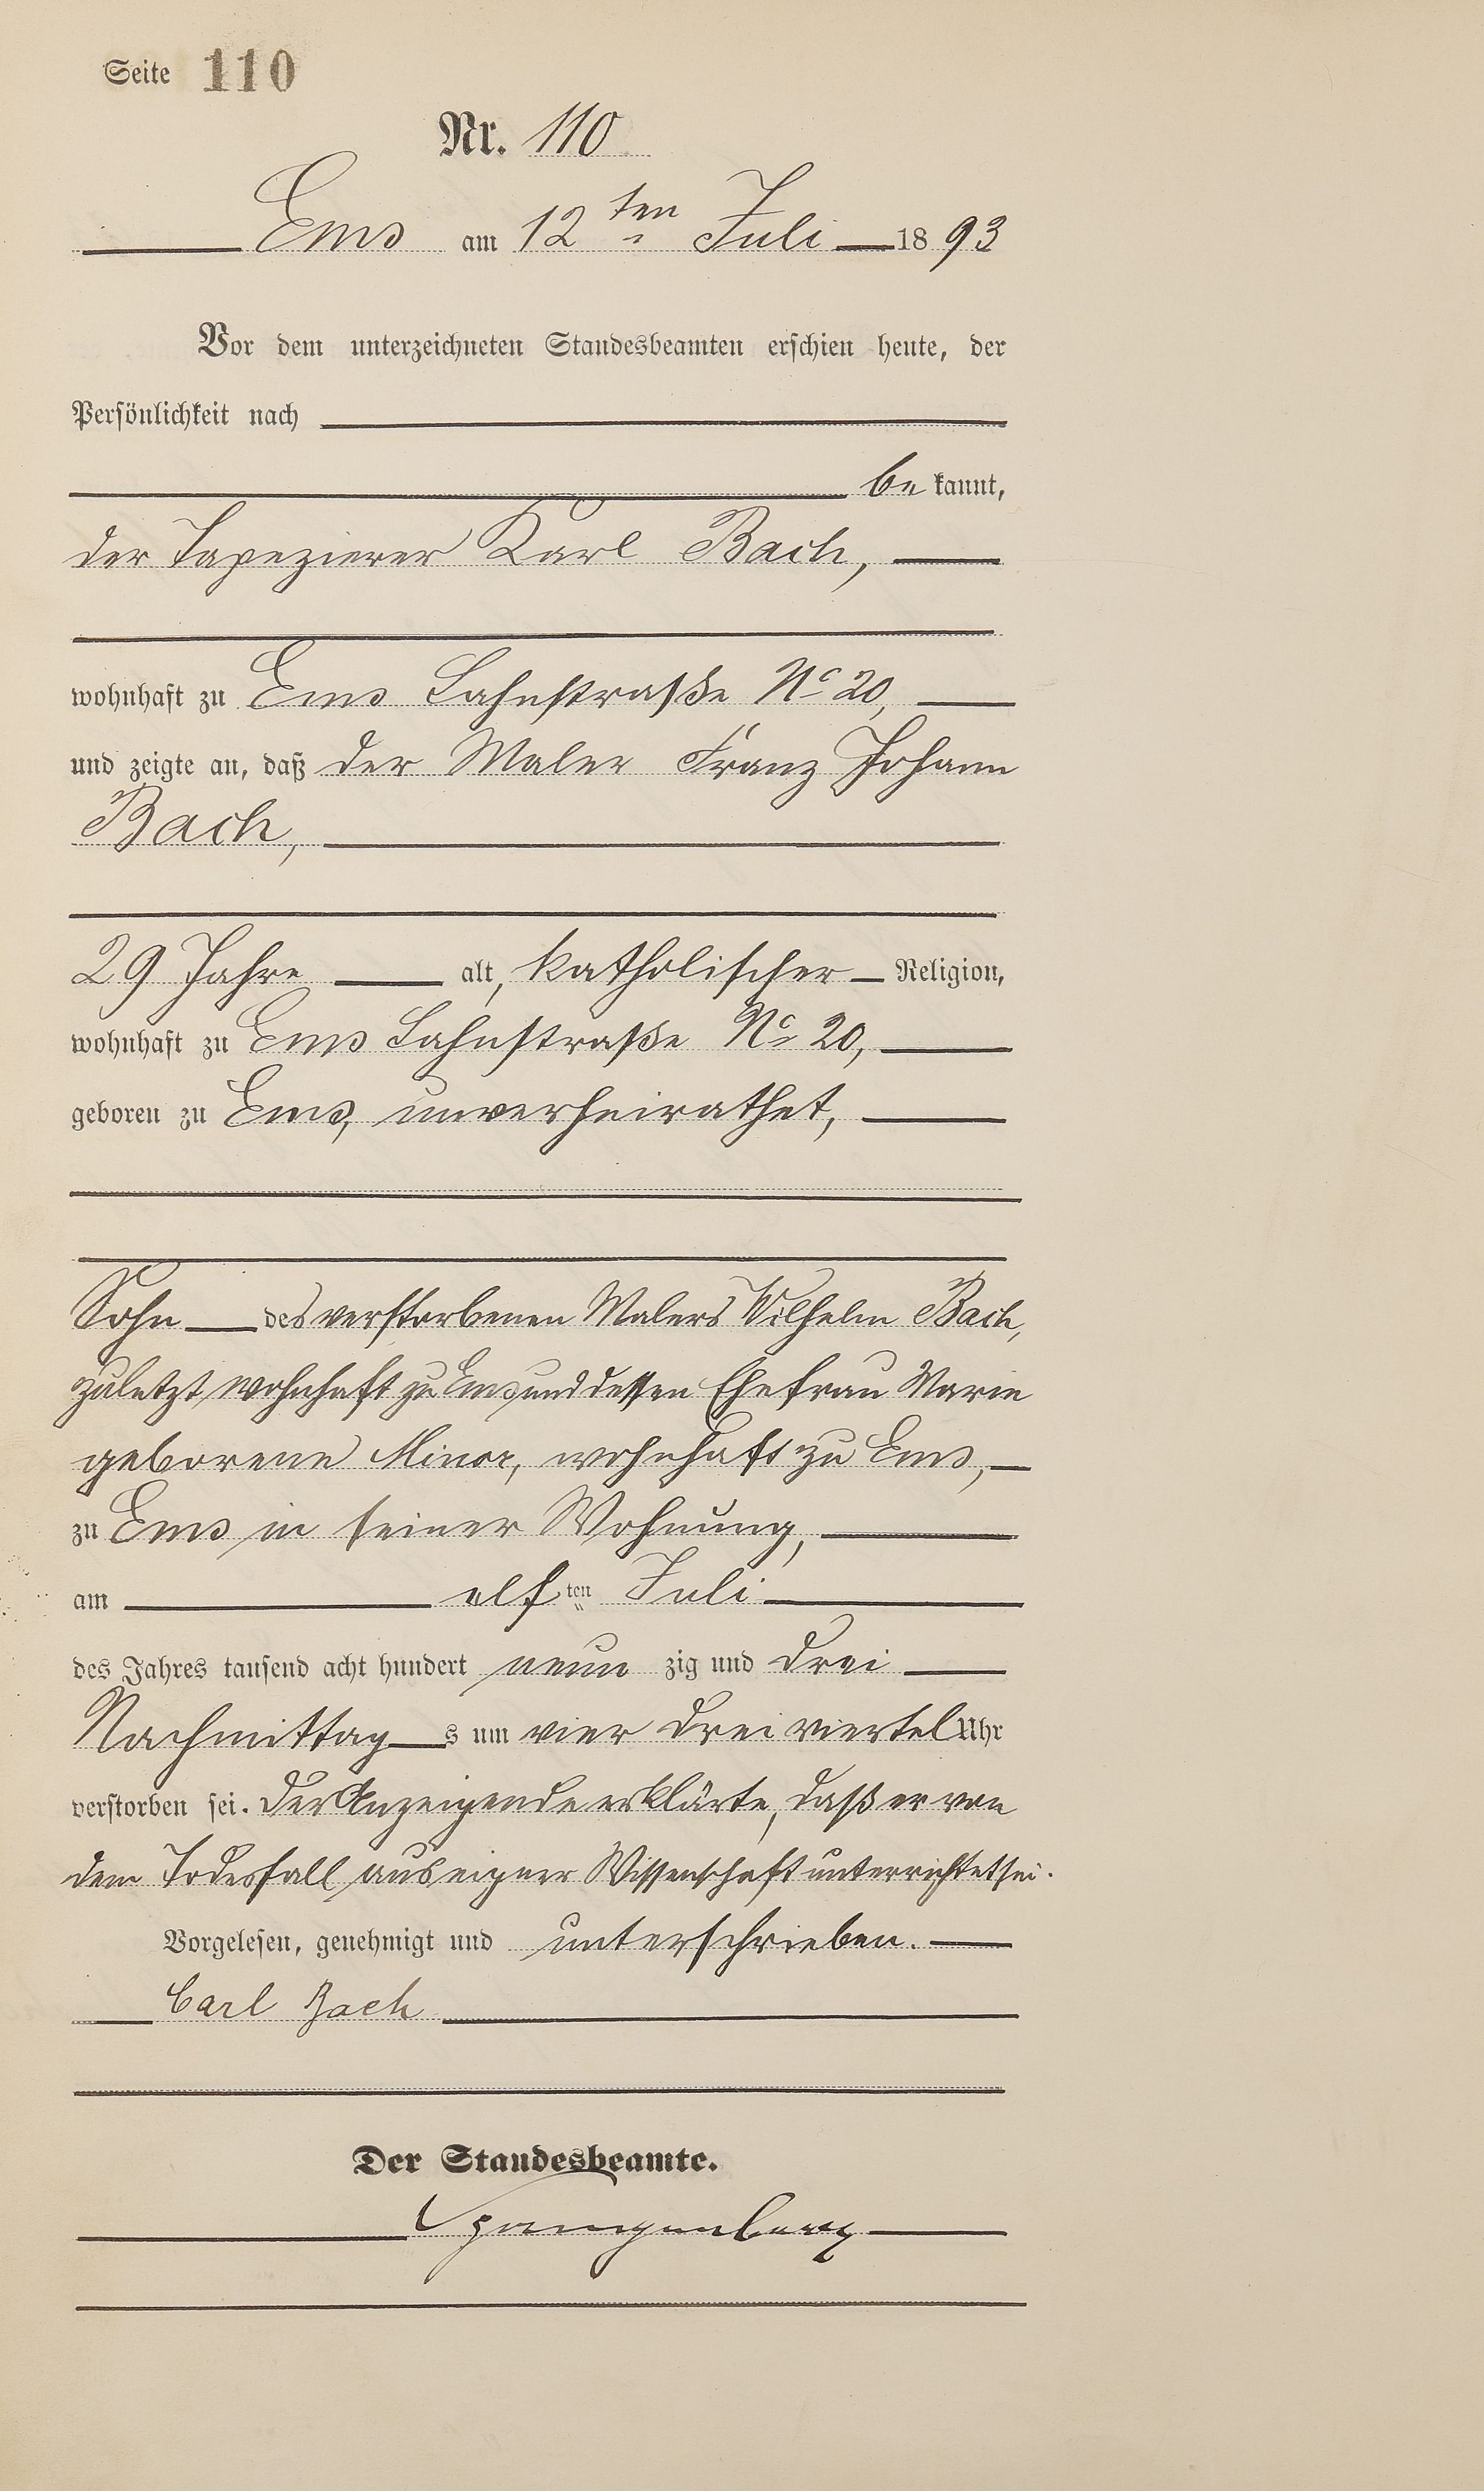 Seite 110
Nr. 110
Ems am 12ten Juli 1893
Vor dem unterzeichneten Standesbeamten erschien heute, der
Persönlichkeit nach
bekannt,
der Tapezierer Karl Bach,
wohnhaft zu Ems Lahnstraße No 20,
und zeigte an, daß der Maler Franz Johann
Bach,
29 Jahre alt, katholischer Religion,
wohnhaft zu Ems Lahnstraße No 20,
geboren zu Ems, unverheirathet,
Sohn des verstorbenen Malers Wilhelm Bach,
zuletzt wohnhaft zu Ems und dessen Ehefrau Marie
geborene Minor, wohnhaft zu Ems,
zu Ems in seiner Wohnung,
am elften Juli
des Jahres tausend acht hundert neunzig und drei
Nachmittags um vier dreiviertel Uhr
verstorben sei. Der Anzeigende erklärte, daß er von
dem Todesfall aus eigner Wissenschaft unterrichtet sei.
Vorgelesen, genehmigt und unterschrieben.
Carl Bach
Der Standesbeamte.
Spangenberg